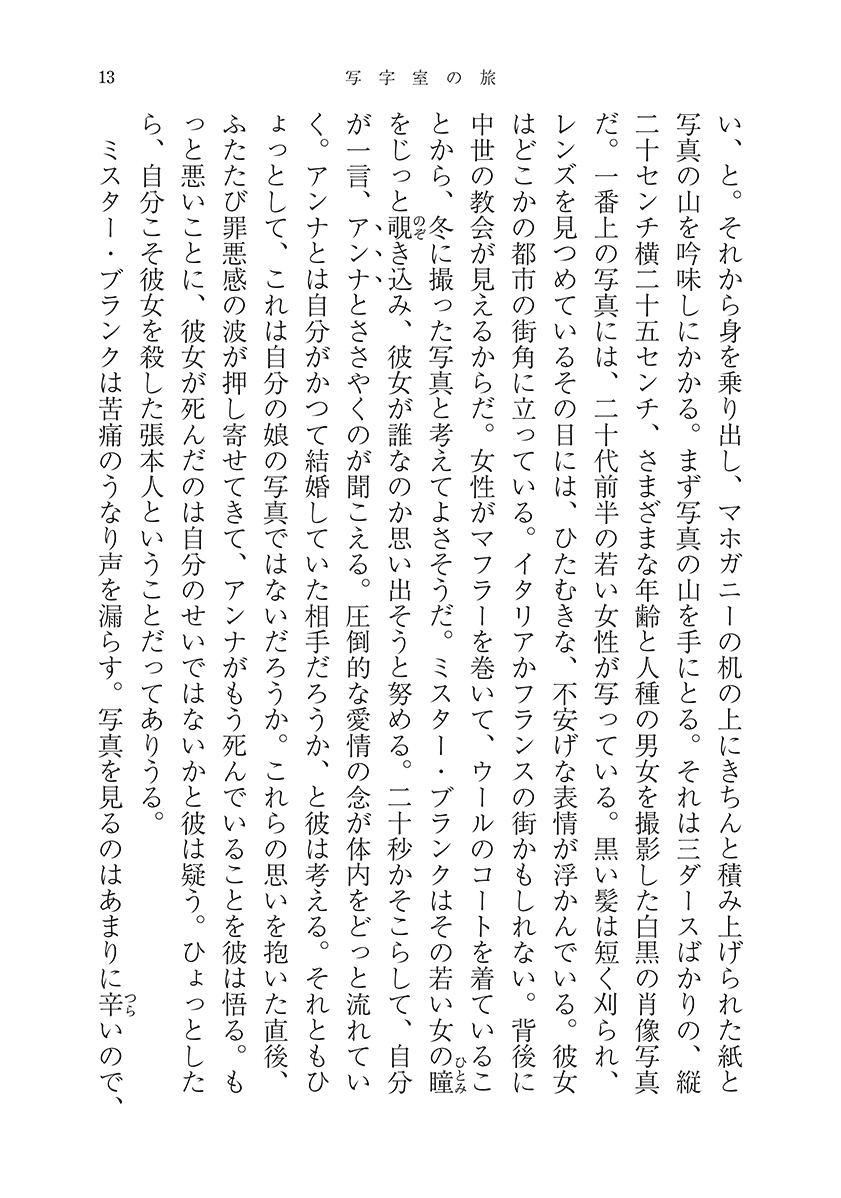 13
写字室の旅
い、と。それから身を乗り出し、マホガニーの机の上にきちんと積み上げられた紙と
写真の山を吟味しにかかる。まず写真の山を手にとる。それは三ダースばかりの、縦
二十センチ横二十五センチ、さまざまな年齢と人種の男女を撮影した白黒の肖像写真
だ。一番上の写真には、二十代前半の若い女性が写っている。黒い髪は短く刈られ、
レンズを見つめているその目には、ひたむきな、不安げな表情が浮かんでいる。彼女
はどこかの都市の街角に立っている。イタリアかフランスの街かもしれない。背後に
中世の教会が見えるからだ。女性がマフラーを巻いて、ウールのコートを着ているこ
とから、冬に撮った写真と考えてよさそうだ。ミスター・ブランクはその若い女の瞳ひとみ
をじっと覗のぞき込み、彼女が誰なのか思い出そうと努める。二十秒かそこらして、自分
が一言、アンナとささやくのが聞こえる。圧倒的な愛情の念が体内をどっと流れてい
く。アンナとは自分がかつて結婚していた相手だろうか、と彼は考える。それともひ
ょっとして、これは自分の娘の写真ではないだろうか。これらの思いを抱いた直後、
ふたたび罪悪感の波が押し寄せてきて、アンナがもう死んでいることを彼は悟る。も
っと悪いことに、彼女が死んだのは自分のせいではないかと彼は疑う。ひょっとした
ら、自分こそ彼女を殺した張本人ということだってありうる。
ミスター・ブランクは苦痛のうなり声を漏らす。写真を見るのはあまりに辛つらいので、